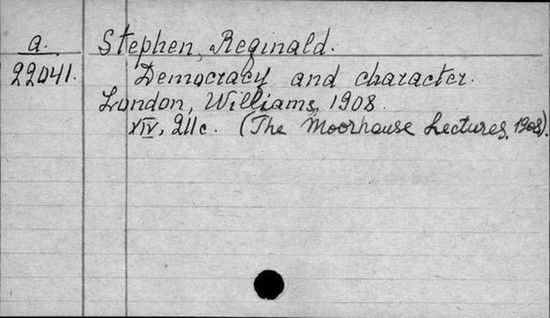 a. Stephen, Reginald.
22041. Democracy and character.
London, Williams, 1908.
XIV, 211c. (The Moorhouse Lectures, 1908).